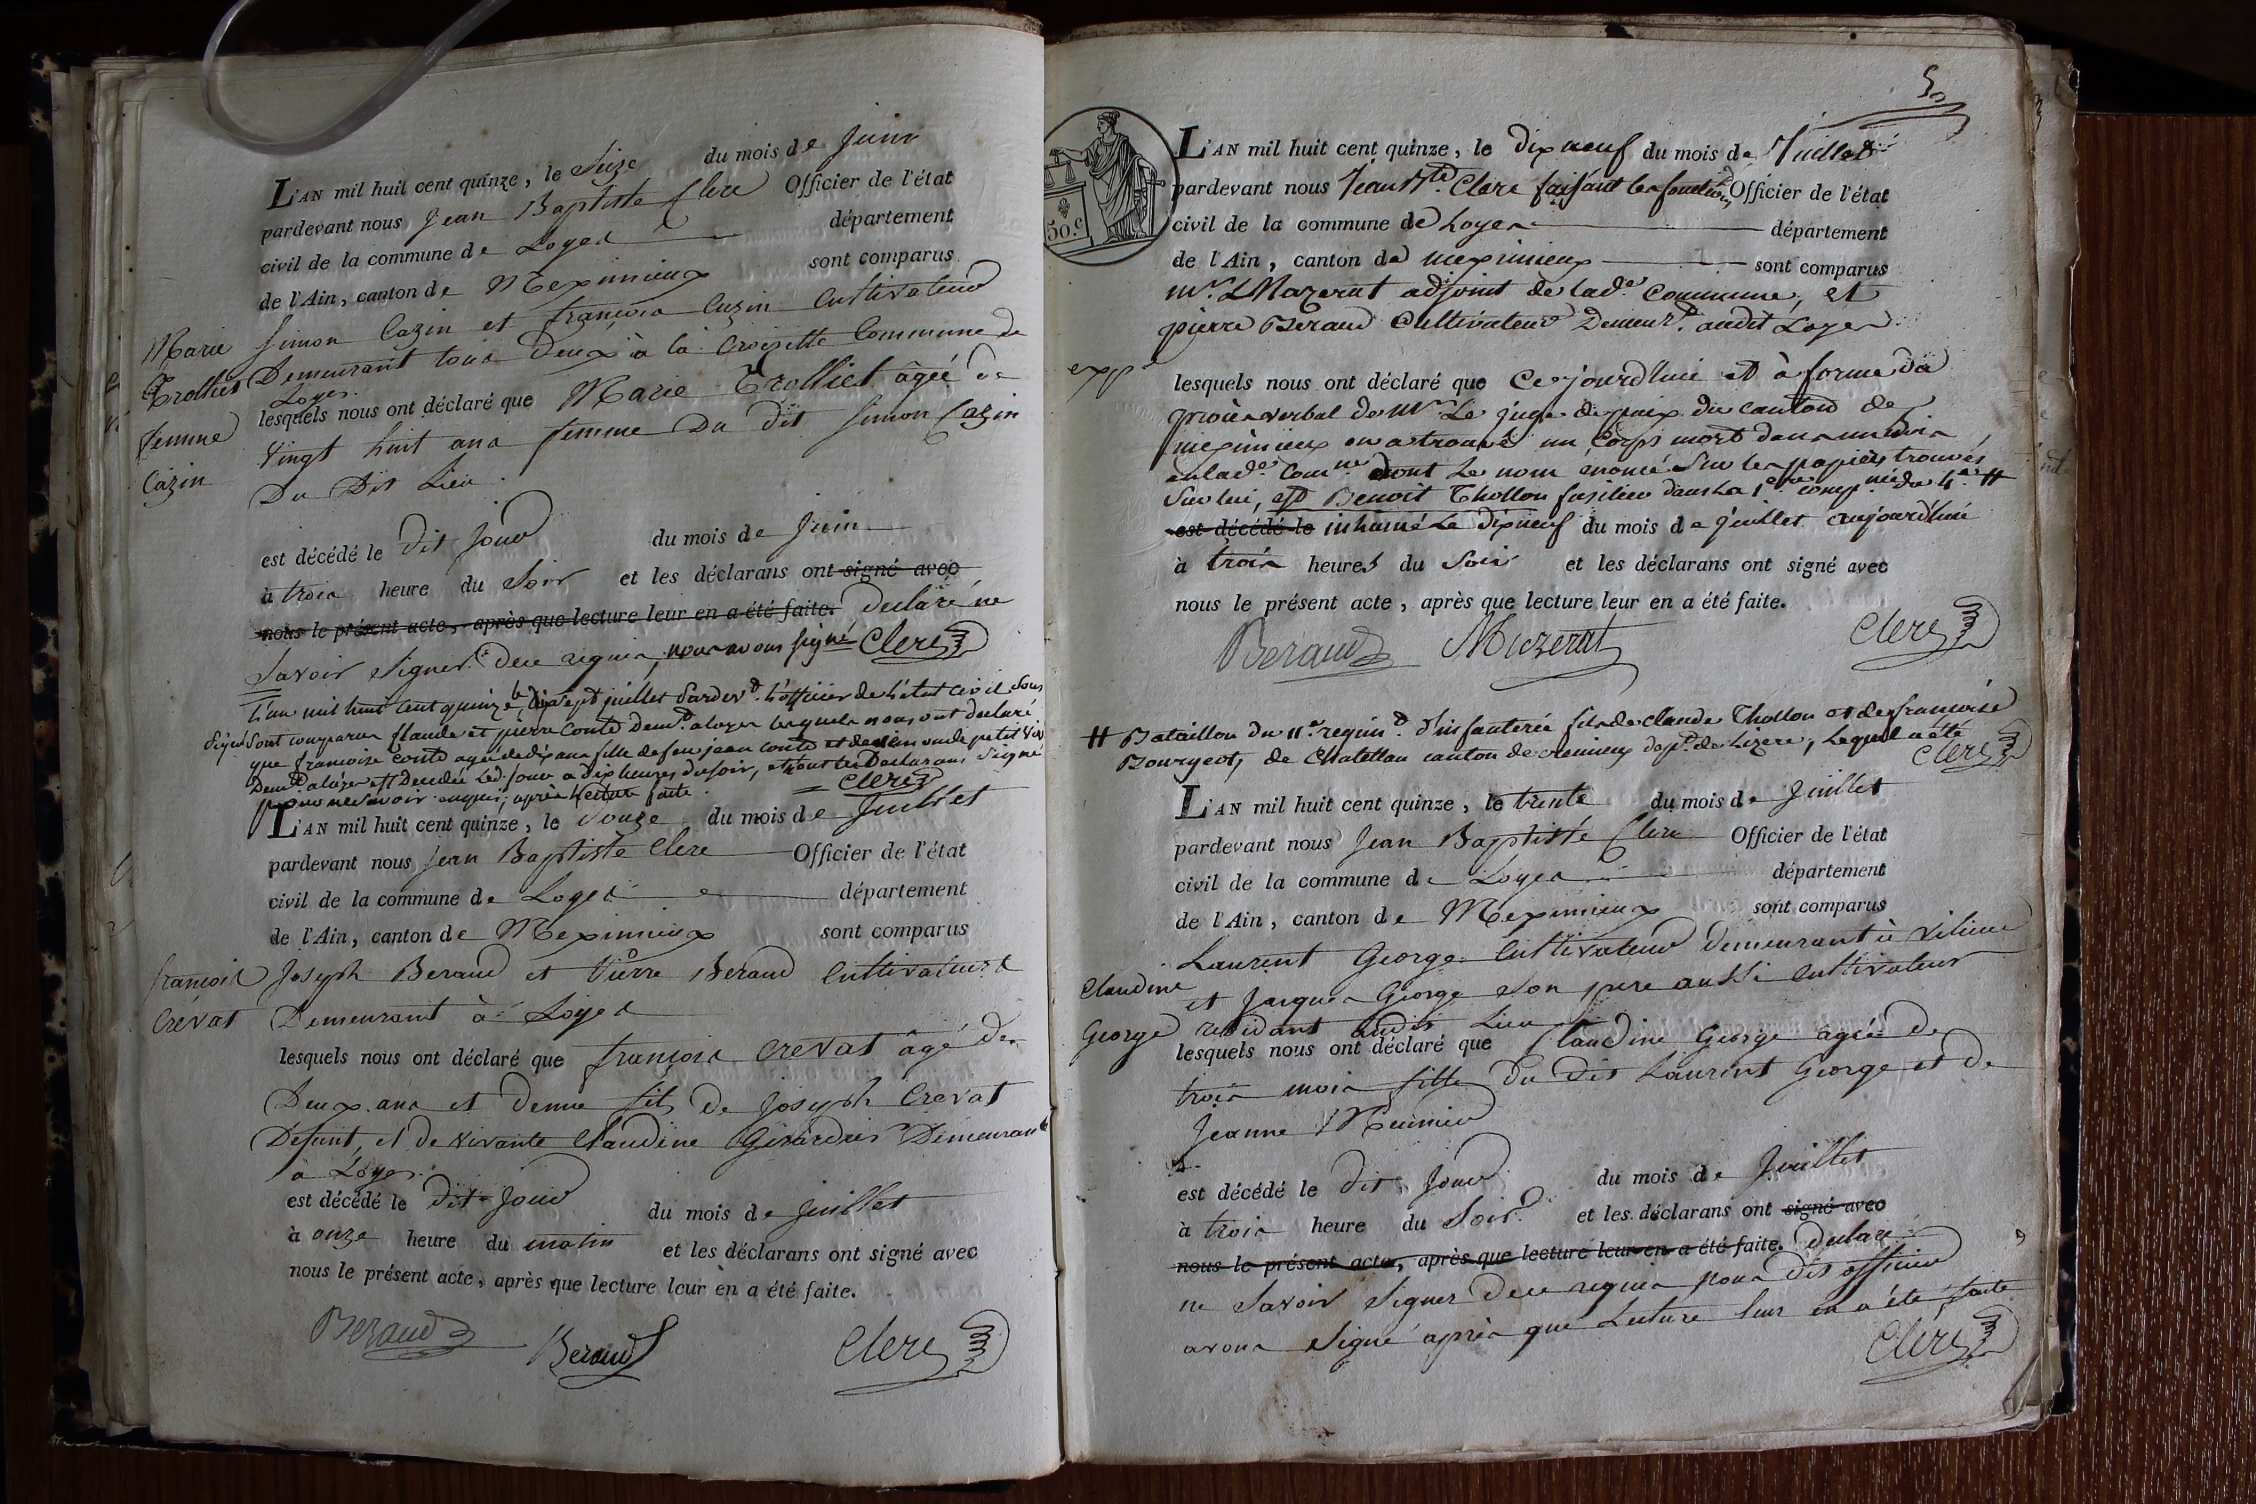 L'AN mil huit cent quinze, le Seize du mois de Juin
pardevant nous Jean Baptiste Clerc Officier de l'état
civil de la commune de Loyes département
de l'Ain, canton de Meximieux sont comparus
Simon Cazin et françois Cuzin Cultivateur
Demeurant tous deux à la Croizette Commune de
Loyes
Marie
Trolliet
femme
Cazin
lesquels nous ont déclaré que Marie Trolliet âgée de
Vingt huit ans femme Du dit Simon Cazin
Du Dit Lieu
est décédé le dit Jour du mois de Juin
à trois heure du Soir et les déclarans ont signé avec
nous le présent acte, après que lecture leur en a été faite. Declaré ne
Savoir Signer de ce requis, nous avons signé Clerc
L'an mil huit cent quinze, le dix sept juillet pardev.t L'officier de L'état Civil Sous
signé Sont comparus Claude et pierre Conte dem.t a loyes lesquels nous ont déclaré
que francoise Conte agée de dix ans fille de feu jean Conte et de
Dem.t a loyes est Decedée led. jour a dix heures du soir, et
pour ne savoir requis, après lecture faite. Clerc
L'AN mil huit cent quinze, le Douze du mois de Juillet
pardevant nous Jean Baptiste Clerc Officier de l'état
civil de la commune de Loyes département
de l'Ain, canton de Meximieux sont comparus
françois
Crévat
Joseph Beraud et Pierre Beraud Cultivateurs
Demeurant à Loyes
lesquels nous ont déclaré que françois Crevat âgé de
Deux ans et demie fils de Joseph Crevat
Défunt, et de vivante Claudine Girardier Demeurant
a Loyes
est décédé le dit Jour du mois de Juillet
à onze heure du matin et les déclarans ont signé avec
nous le présent acte, après que lecture leur en a été faite.
Beraud Beraud Clerc
5
50.c
L'AN mil huit cent quinze, le dix neuf du mois de Juillet
pardevant nous Jean B.te Clerc faisant les fonctions Officier de l'état
civil de la commune de Loyes département
de l'Ain, canton de meximieux sont comparus
m.r Mazerat adjoint de lad.e Commune, et
pierre Beraud Cultivateur Demeur.t audit Loyes
lesquels nous ont déclaré que Cejourdhui et à forme du
procès verbal de Mr Le juge de paix du canton de
meximieux on a trouvé un Corps mort dans un bois
en lad.e Com.ne dont Le nom énoncé Sur les papiers trouvés
Sur lui, est Benoit Thollon fusilier dans la 1ere comp.nie du 4.e #
est décédé le inhumé Le dix neuf du mois de juillet aujourdhui
à trois heures du Soir et les déclarans ont signé avec
nous le présent acte, après que lecture leur en a été faite.
Beraud Mazerat Clerc
# Bataillon du 11.e regim.t d'infanterie fils de claude Thollon et de francoise
Bourgeot, de Chatellan canton de cremieux dep.t de Lizere, Lequel a été
Clerc
L'AN mil huit cent quinze, le trente du mois de Juillet
pardevant nous Jean Baptiste Clerc Officier de l'état
civil de la commune de Loyes département
de l'Ain, canton de Meximieux sont comparus
Laurent George Cultivateur demeurant à Vilieu
Claudine
George
et Jacques George son pere aussi Cultivateur
residant audit Lieu
lesquels nous ont déclaré que Claudine George agée de
trois mois fille du dit Laurent George et de
Jeanne Meunier
est décédé le dit Jour du mois de Juillet
à trois heure du Soir et les déclarans ont signé avec
nous le présent acte, après que lecture leur en a été faite. declaré
ne Savoir Signer de ce requis nous dit officier
avons Signé après que Lecture leur en a été faite
Clerc